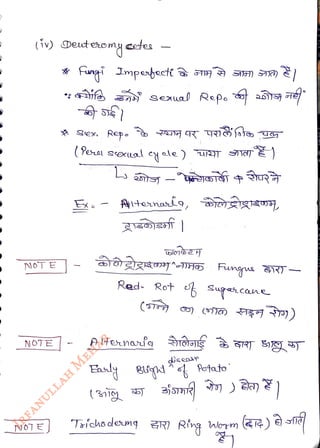 (iv) Deuteromycetes -
* Fungi Imperfecti के नाम से जाना जाता है।
∵ क्योंकि इनमें sexual Repo की खोज नहीं
की गई।
* Sex. Repo के स्थान पर परालैंगिक चक्र
(Para sexual cycle) पाया जाता है।
↳ खोज - पोन्टेकार्वो & रोपर ने
Ex. - Alternaria, कोलेट्रोट्राइकम,
ट्राइकोडर्मा।
फलकेटम
NOTE - कोलेट्रोट्राइकम नामक Fungus द्वारा -
Red- Rot of Sugarcane
(गन्ने का लाल सड़न रोग)
NOTE - Alternaria सोलेनाई के द्वारा आलू का
disease
Early Blight of Potato
(आलू का अंगमारी रोग) होता है।
NOTE Trichoderma द्वारा Ring Worm (दाद) हो जाती
है
IRFANULLAH MEHAR